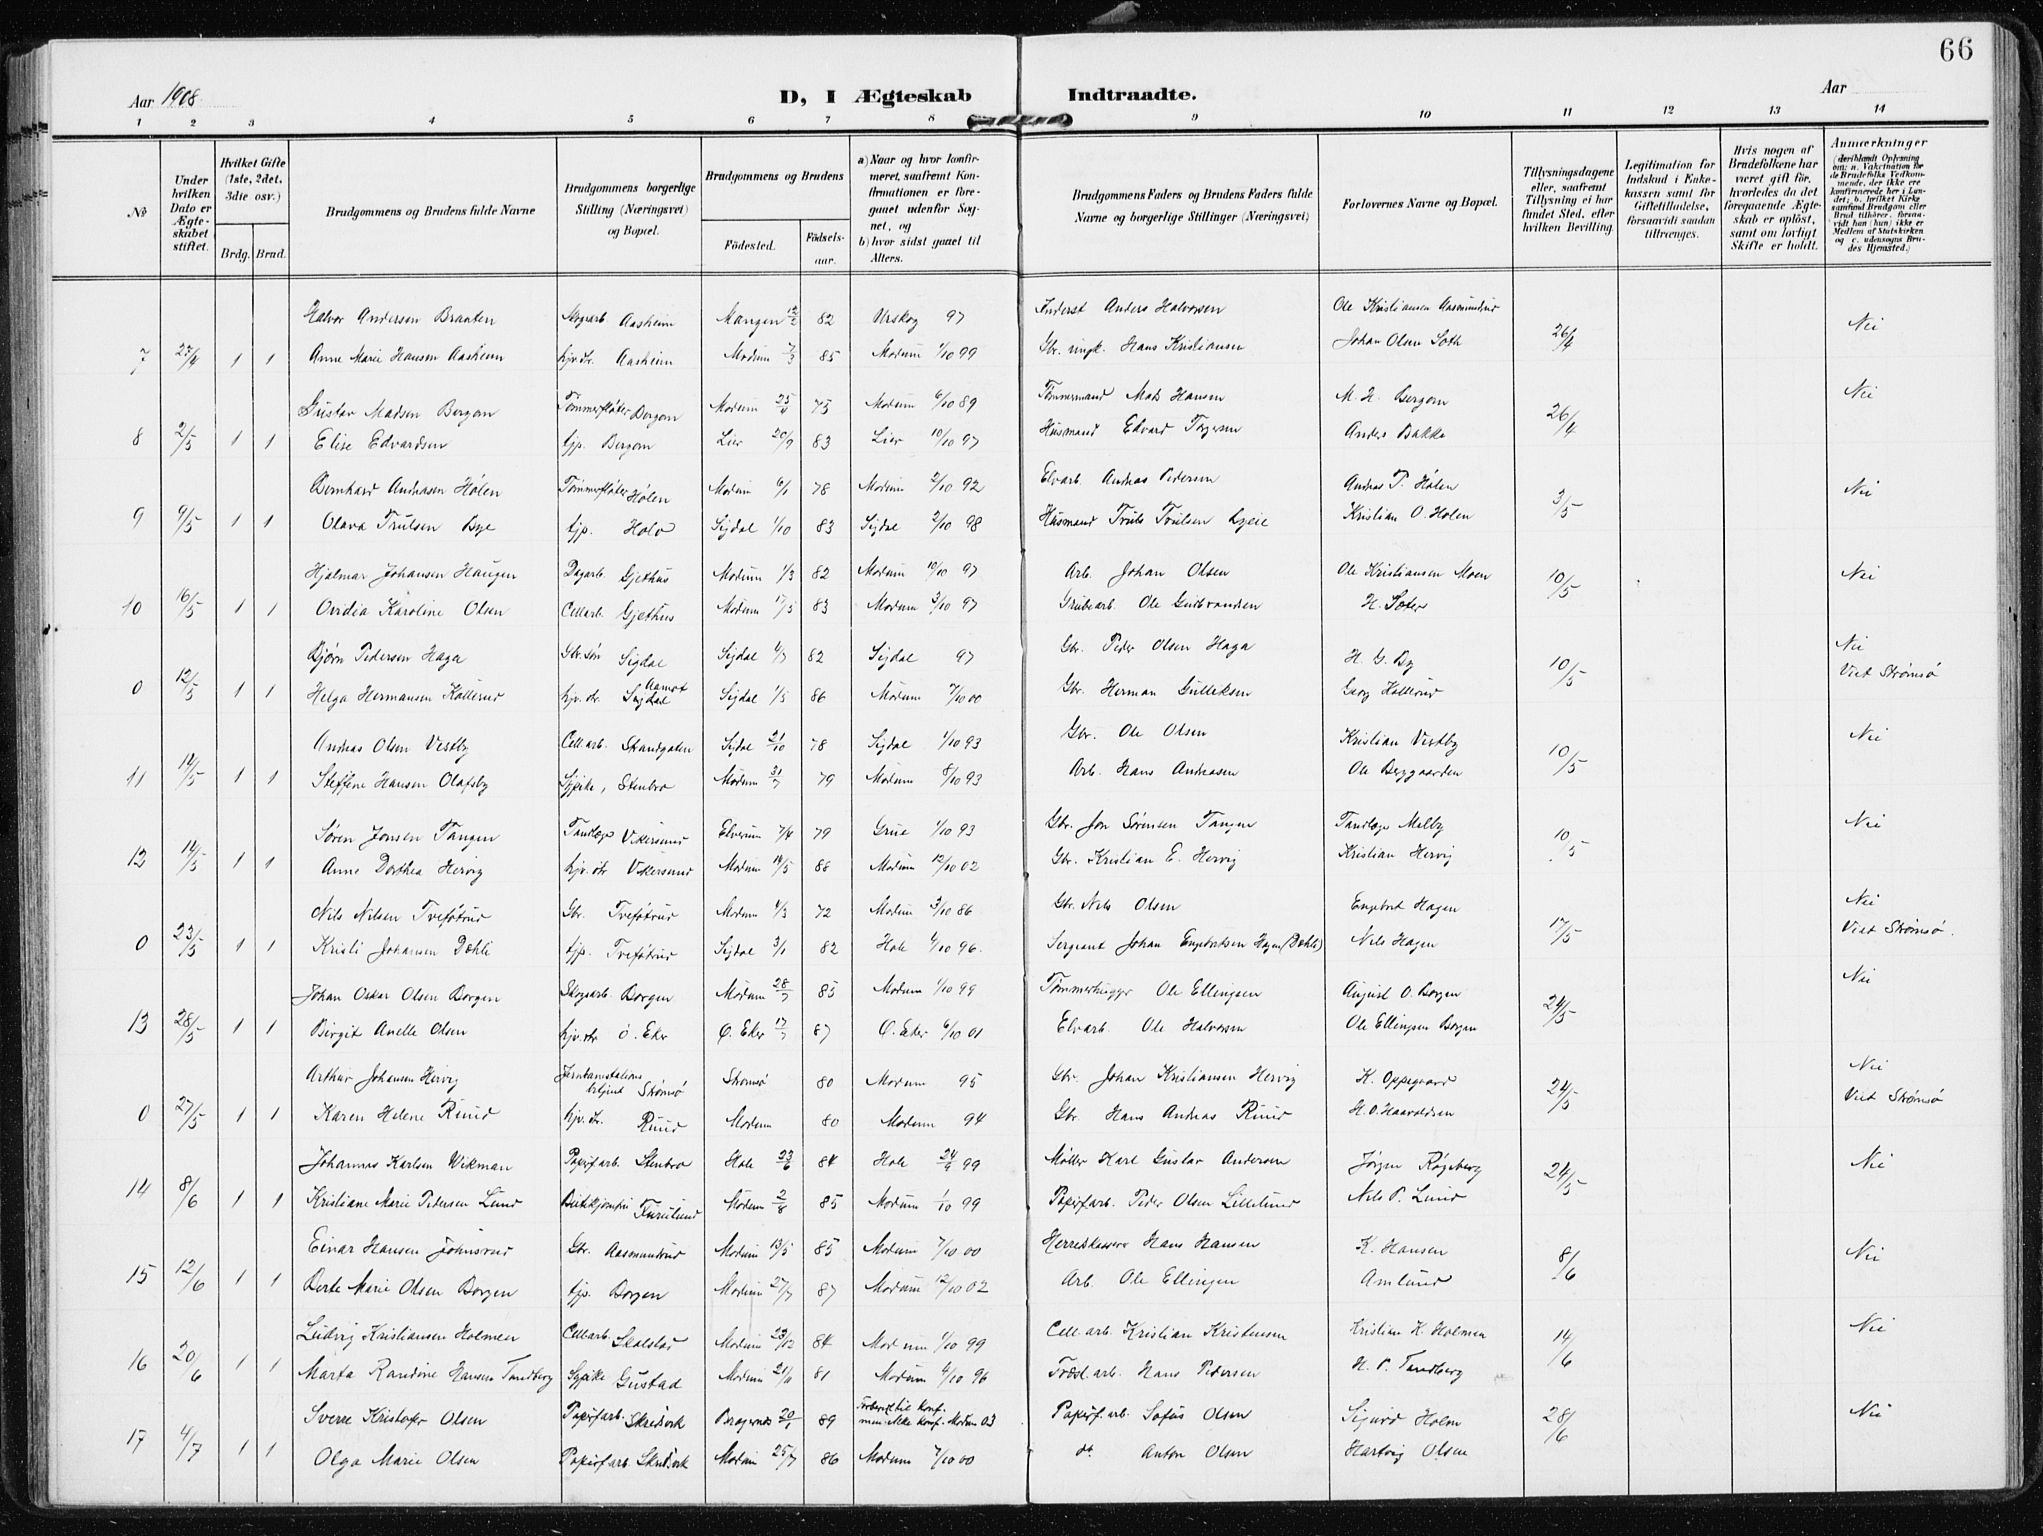 66
Aar 1908.
D, I Ægteskab Indtraadte.
Aar
1 2 3 4 5 6 7 8 9 10 11 12 13 14
No
Under hvilken Dato er Ægteskabet stiftet.
Hvilket Gifte (1ste, 2det, 3die osv.)
Brdg. Brud.
Brudgommens og Brudens fulde Navne
Brudgommens borgerlige Stilling (Næringsvei) og Bopæl.
Brudgommens og Brudens
Födested. Födselsaar.
a) Naar og hvor konfirmeret, saafremt Konfirmationen er foregaaet udenfor Sognet, og
b) hvor sidst gaaet til Alters.
Brudgommens Faders og Brudens Faders fulde Navne og borgerlige Stillinger (Næringsvei)
Forlovernes Navne og Bopæl.
Tillysningsdagene eller, saafremt Tillysning ei har fundet Sted, efter hvilken Bevilling.
Legitimation for Indskud i Enkekassen samt for Giftetilladelse, forsaavidt saadan tiltrænges.
Hvis nogen af Brudefolkene har været gift för, hvorledes da det foregaaende Ægteskab er oplöst, samt om lovligt Skifte er holdt.
Anmærkninger
Halvor Andersen Braaten Skogarb. Aasheim Mangen 12/2 82 Urskog 97 Inderst Anders Halvorsen Ole Kristiansen Aasmundrud Nei
7 27/4 1 1 Anne Marie Hansen Aasheim hjv. dr. Aasheim Modum 7/3 85 Modum 1/10 99 Gbr. Hans Kristiansen Johan Olsen Soth 26/4
Gustav Madsen Bergan Tømmerfløter Bergan Modum 75 Modum 6/10 89 Tømmermand Mads Hansen M. H. Bergan Nei
8 2/5 1 1 Elise Edvardsen tjp. Bergan Lier 20/9 83 Lier 10/10 97 Husmand Edvard Torgersen Anders Bakke 26/4
Bernhard Andreasen Holen Tømmerfløter Holen Modum 6/1 78 Modum 2/10 92 Elvarb. Andreas Pedersen Andreas P. Holen Nei
9 9/5 1 1 Olava Trulsen Bye tjp. Sigdal 1/10 83 Sigdal 2/10 98 Husmand Truls Trulsen Kristian O. Holen 3/5
Hjalmar Johansen Haugen Dagarb. Gjethus Modum 1/3 82 Modum 10/10 97 Arb. Johan Olsen Ole Kristiansen Moen Nei
10 16/5 1 1 Ovidia Karoline Olsen Cellarb. Gjethus Modum 17/5 83 Modum 3/10 97 Grubearb. Ole Gudbrandsen H. 10/5
Bjørn Pedersen Haga Gbr. søn Sigdal Sigdal 82 Sigdal 97 Gbr. Peder Olsen Haga H. G. By Nei
0 12/5 1 1 Helga Hermansen Kollerud hjv. dr. Aamot Sigdal Sigdal 1/5 86 Modum 7/10 00 Gbr. Herman Gulliksen Georg Kollerud 10/5 Viet Strømsø
Andreas Olsen Vestby Cell.arb. Strandgaten Sigdal 21/10 78 Sigdal 1/10 93 Gbr. Ole Olsen Kristian Vestby Nei
11 14/5 1 1 Steffine Hansen Olafsby Sypike, Stenbro Modum 31/7 79 Modum 8/10 93 Arb. Hans Andreasen Ole Berggaarden 10/5
Søren Jonsen Tangen Tandlæge Vikersund Elverum 7/4 79 Grue 1/10 93 Gbr. Jon Sørensen Tangen Tandlæge Melby Nei
12 14/5 1 1 Anne Dorthea Hervig hjv. dtr Vikersund Modum 14/5 88 Modum 12/10 02 Gbr. Kristian E. Hervig Kristian Hervig 10/5
Nils Nilsen Tveføtrud Gbr. Tveføtrud Modum 4/3 72 Modum 3/10 86 Gbr. Nils Olsen Engebret Hagen Nei
0 23/5 1 1 Kristi Johansen Dæhli tjp. Tveføtrud Sigdal 3/1 82 Hole 4/10 96. Sergeant Johan Engebretsen Hagen (Dæhli) Nils Hagen 17/5 Viet Strømsø.
Johan Oskar Olsen Borgen Skogsarb. Borgen Modum 28/7 85 Modum 1/10 99 Tømmerhugger Ole Ellingsen August O. Borgen Nei
13 28/5 1 1 Birgit Anelle Olsen hjv. dtr Ø. Eker Ø. Eker 17/7 87 Ø. Eker 6/10 01 Elvarb. Ole Halvorsen Ole Ellingsen Borgen 24/5
Arthur Johansen Hervig Jernbanestations betjent Strømsø Strømsø 80 Modum 95 Gbr. Johan Kristiansen Hervig K. Oppegaard Nei
0 27/5 1 1 Karen Helene Ruud hjv. dr. Ruud Modum 80 Modum 94 Gbr. Hans Andreas Ruud H. O. Haavaldsen 24/5 Viet Strømsø
Johannes Karlsen Wikman Papirf.arb. Stenbro Hole 23/6 84 Hole 24/9 99 Møller Karl Gustav Andersen Jørgen Røgeberg Nei
14 8/6 1 1 Kristiane Marie Pedersen Lund Butikjomfru Furulund Modum 2/8 85 Modum 1/10 99 Papirf.arb. Peder Olsen Lillelund Nels P. Lund 24/5
Einar Hansen Johnsrud Gbr. Aasmundrud Modum 13/5 85 Modum 7/10 00 Herredskasserer Hans Hansen K. Hansen Nei
15 12/6 1 1 Berte Marie Olsen Borgen tjp. Borgen Modum 27/7 87 Modum 12/10 02 Arb. Ole Ellingsen Amlund 8/6
Ludvig Kristiansen Holmen Cell.arb. Skalstad Modum 23/12 84 Modum 1/10 99 Cell.arb. Kristian Kristensen Kristian K. Holmen Nei
16 20/6 1 1 Marta Randine Hansen Tandberg Sypike Gustad Modum 81 Modum 4/10 96 Træsl.arb. Hans Pedersen H. P. Tandberg 14/6
Sverre Kristofer Olsen Papirf.arb. Skredsvik Bragernes 20/1 89 Forberedt til konf. men ikke konf. Modum 03 Papirf.arb. Sofus Olsen Sigurd Holm Nei
17 4/7 1 1 Olga Marie Olsen Papirf.arb. Skredsvik Modum 25/7 86 Modum 7/10 00 do. Anton Olsen Hartvig Olsen 28/6